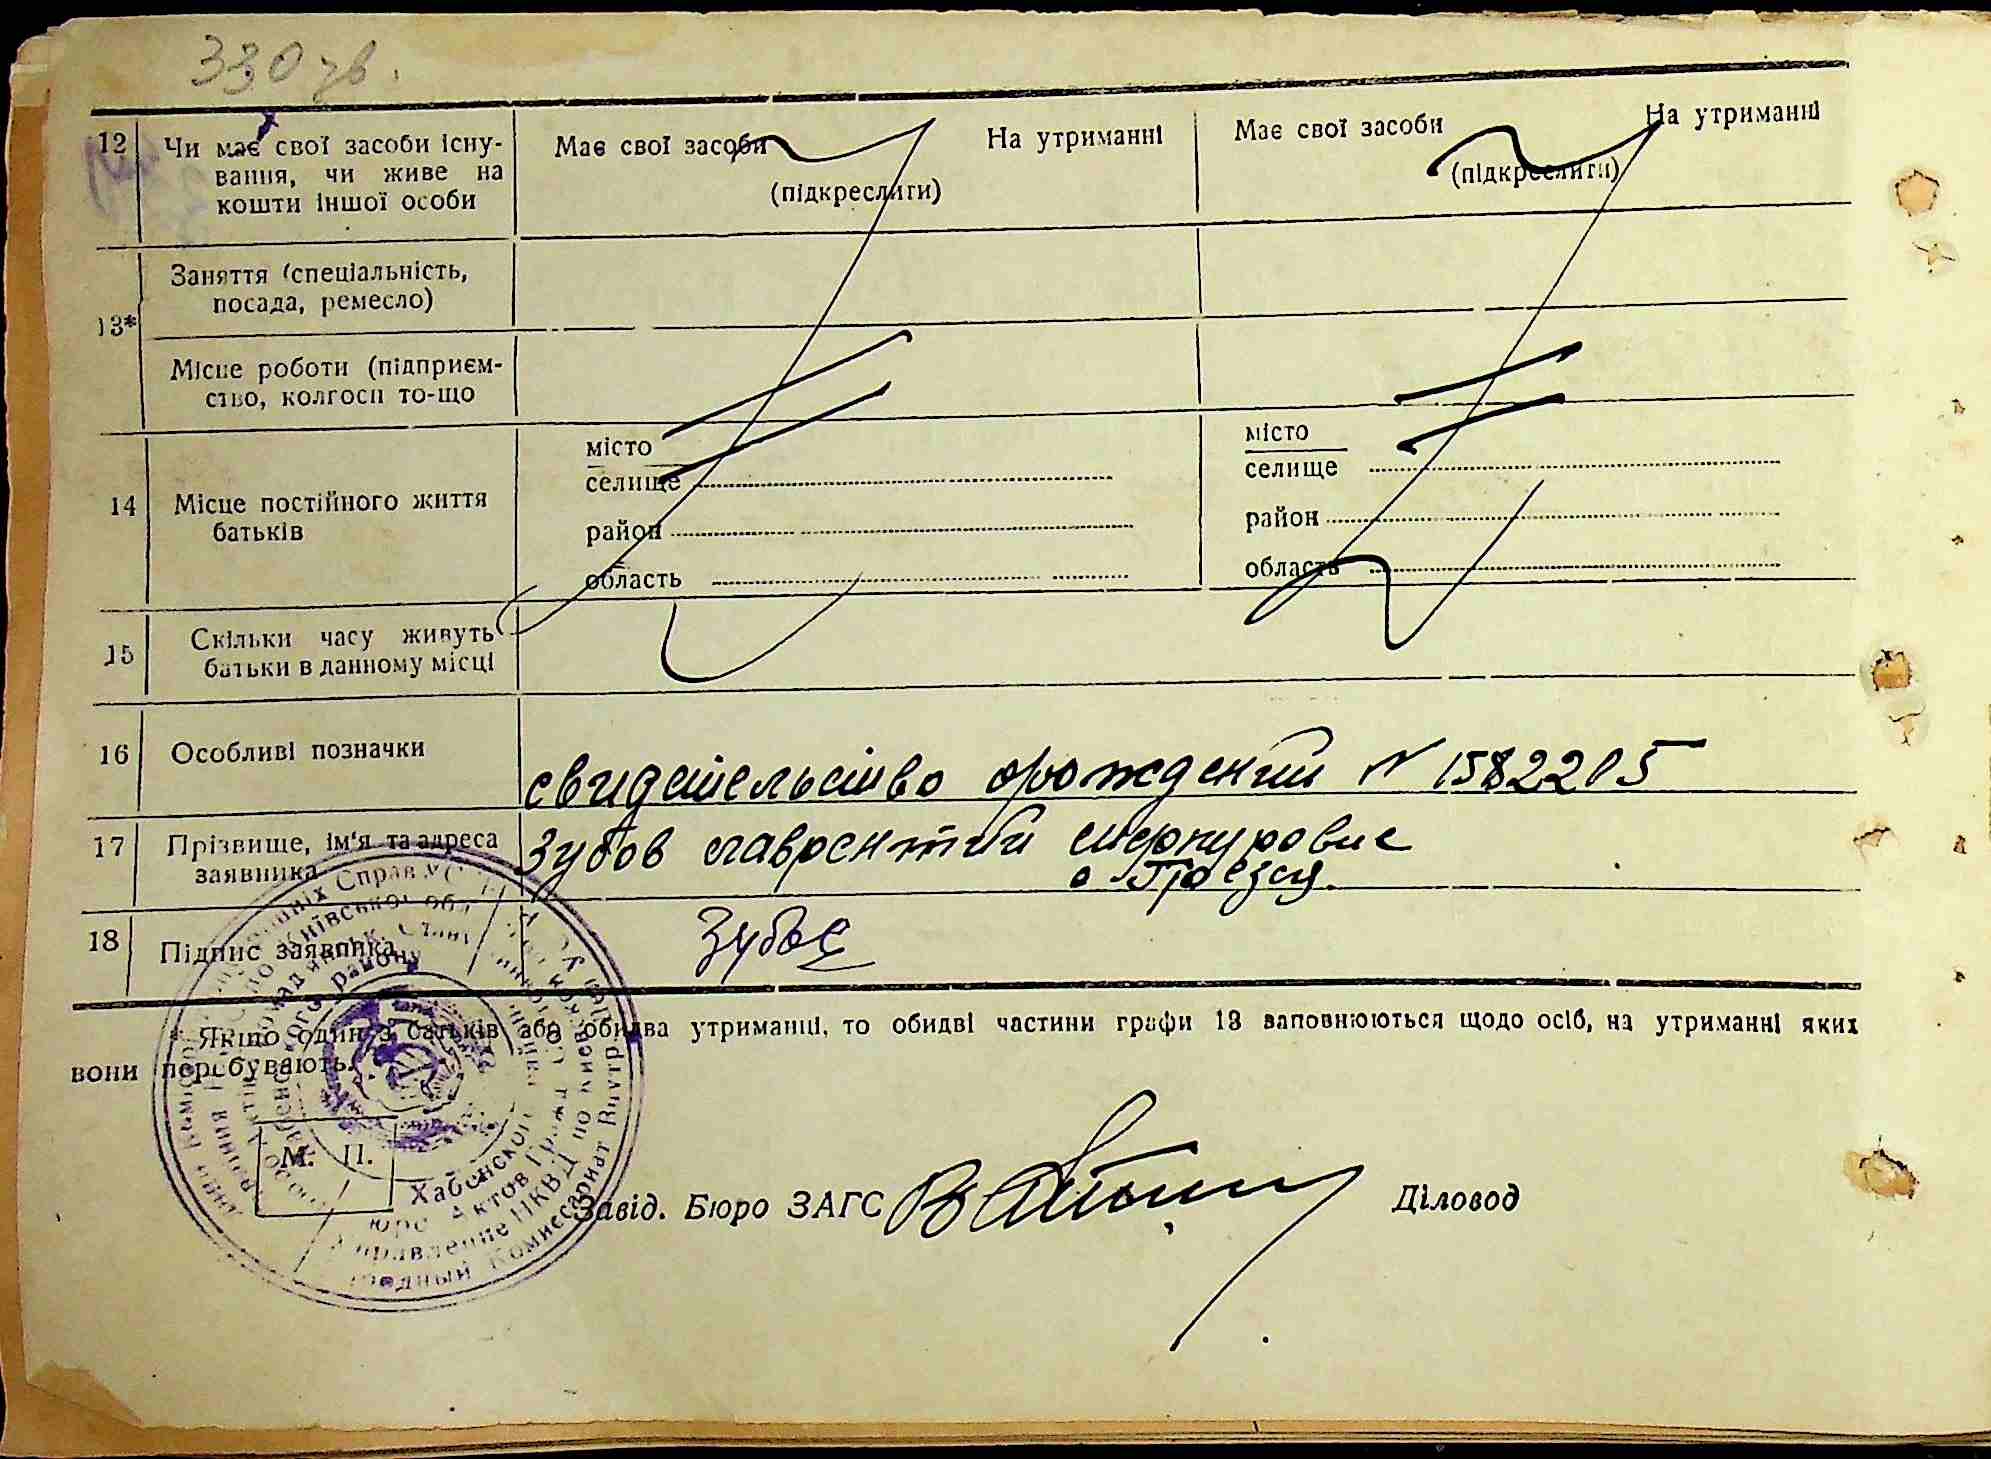 330 зв.
12 Чи має свої засоби існу-
вання, чи живе на
кошти іншої особи
Має свої засоби На утриманні
(підкреслити)
Має свої засоби На утриманні
(підкреслити)
13*
Заняття (спеціальність,
посада, ремесло)
Місце роботи (підприєм-
ство, колгосп то-що
14 Місце постійного життя
батьків
місто
селище
район
область
місто
селище
район
область
15 Скільки часу живуть
батьки в данному місці
16 Особливі позначки
свидетельство орождении N 1582205
17 Прізвище, ім'я та адреса
заявника
Зубов лаврентий
18 Підпис заявника
Зубов
* Якщо один з батьків або обидва утриманці, то обидві частини графи 13 заповнюються щодо осіб, на утриманні яких
вони перебувають.
М. П.
Завід. Бюро ЗАГС
Діловод